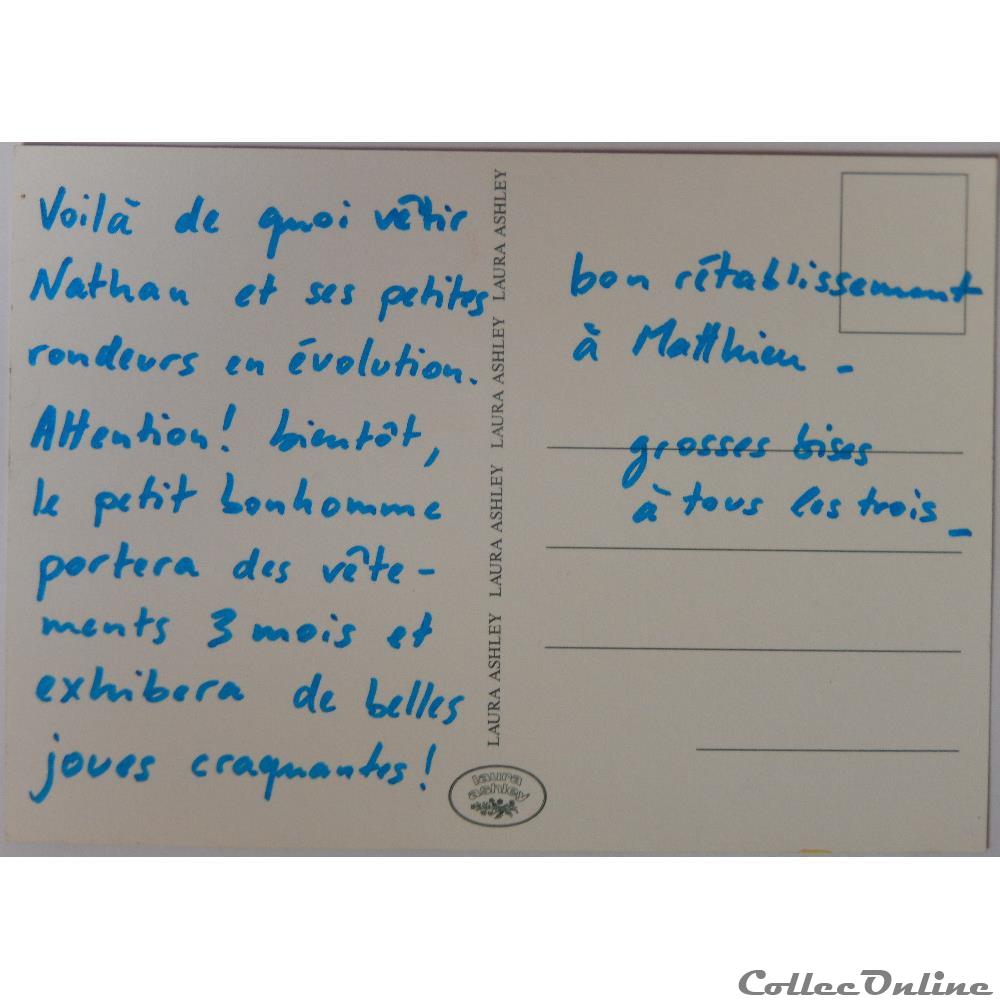 Voilà de quoi vêtir
Nathan et ses petites
rondeurs en évolution.
Attention! bientôt,
le petit bonhomme
portera des vête-
ments 3 mois et
exhibera de belles
joues craquantes!
LAURA ASHLEY LAURA ASHLEY LAURA ASHLEY LAURA ASHLEY
laura
ashley
bon rétablissement
à Matthieu -
grosses bises
à tous les trois -
CollecOnline